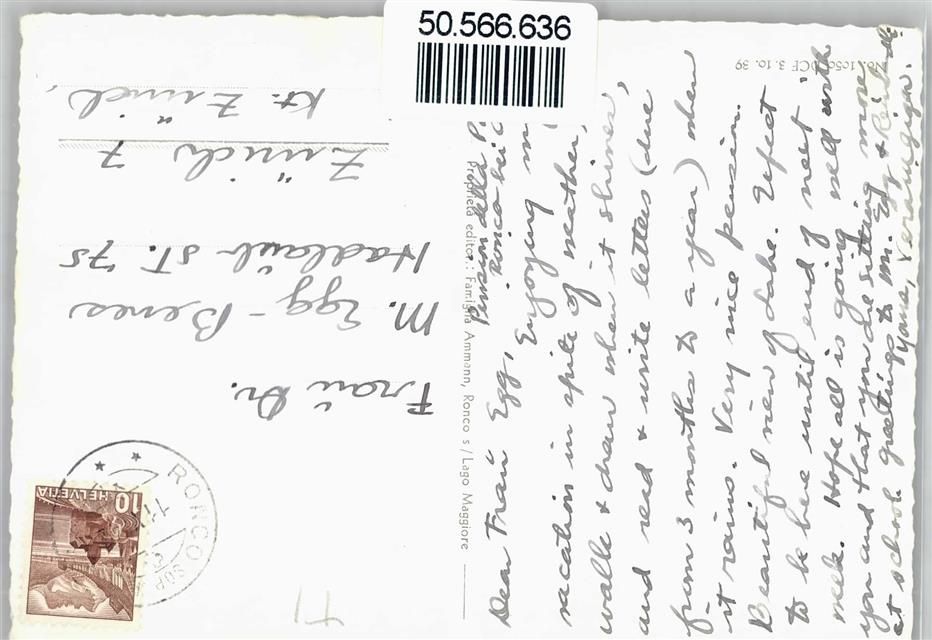 50.566.636
No. 1050 DCF 3.10.39
Pension della P.
Ronco bei
Dear Frau Egg,
Enjoying my
vacation in spite of weather,
walk & draw when it shines,
and read & write letters (due
from 3 months to a year) when
it rains. Very nice pension.
Beautiful view of Lake. Expect
to be here until end of next
week. Hope all is going well with
you and that you are sitting more
at school greetings to Mr. Egg &
Yours,
Proprietà editor.: Famiglia Ammann, Ronco s/Lago Maggiore
Frau Dr.
M. Egg-Benes
Hadlaub St. 75
Zürich 7
Kt. Zürich,
RONCO SOP
HELVETIA
10